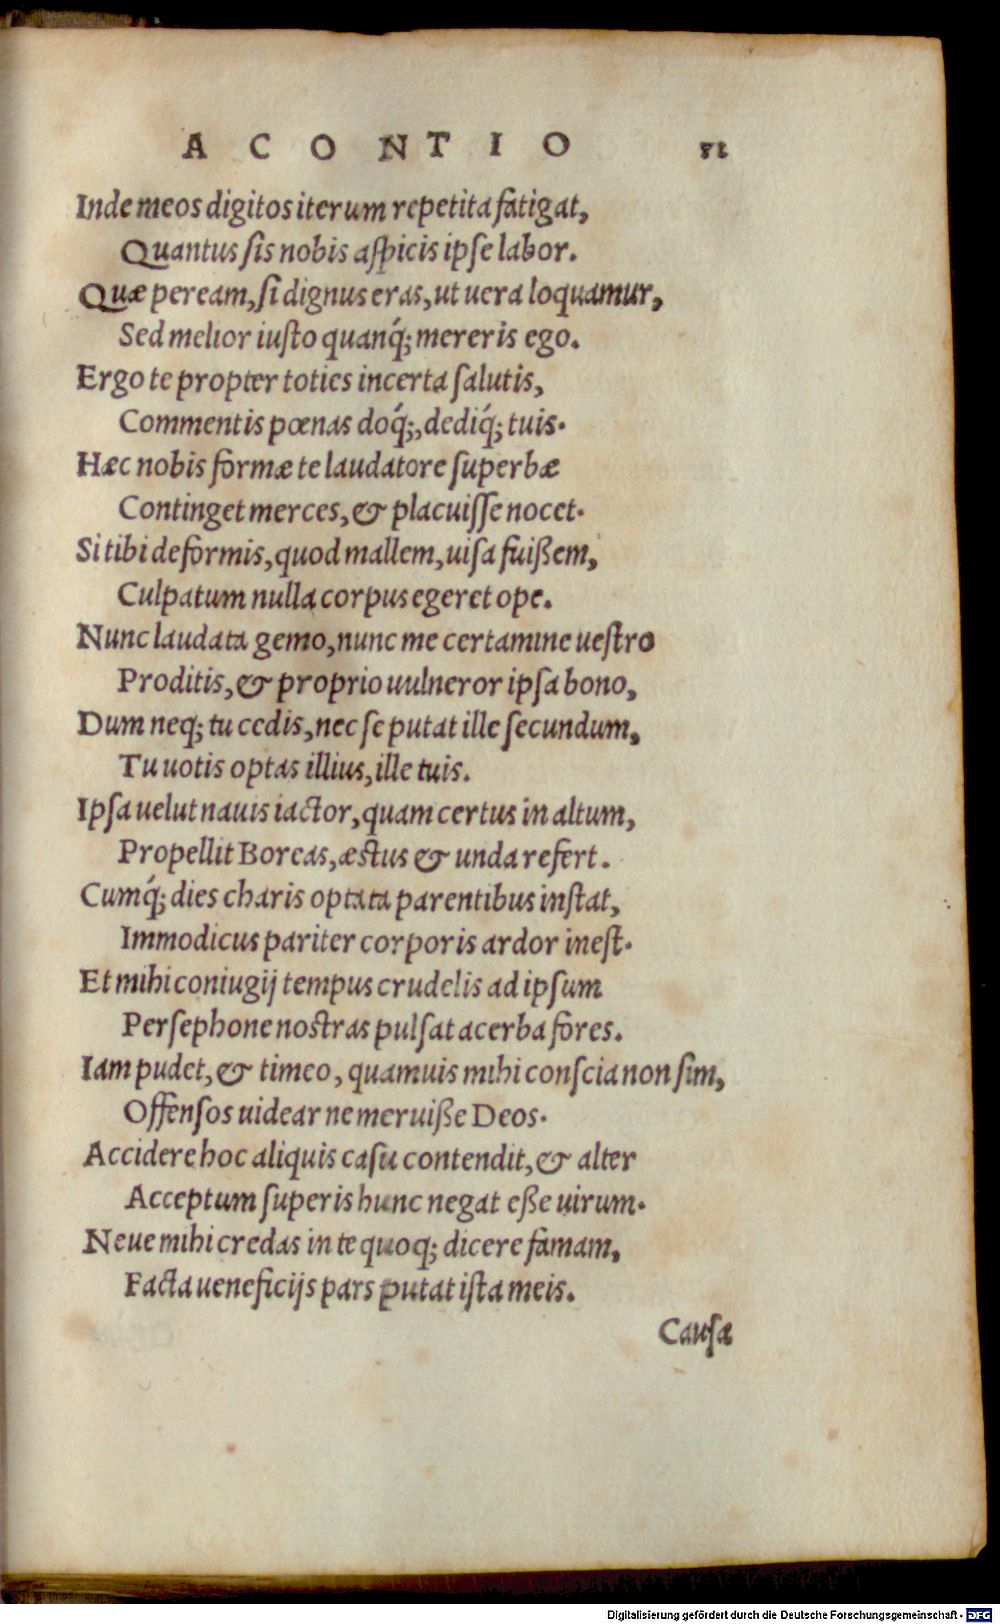 ACONTIO 71
Inde meos digitos iterum repetita fatigat,
Quantus ſis nobis aſpicis ipſe labor.
Quæ peream, ſi dignus eras, ut uera loquamur,
Sed melior iuſto quanq́; mereris ego.
Ergo te propter toties incerta ſalutis,
Commentis pœnas doq́;, dediq́; tuis.
Hæc nobis formæ te laudatore ſuperbæ
Continget merces, & placuiſſe nocet.
Si tibi deformis, quod mallem, uiſa fuißem,
Culpatum nulla corpus egeret ope.
Nunc laudata gemo, nunc me certamine ueſtro
Proditis, & proprio uulneror ipſa bono,
Dum neq; tu cedis, nec ſe putat ille ſecundum,
Tu uotis optas illius, ille tuis.
Ipſa uelut nauis iactor, quam certus in altum,
Propellit Boreas, æstus & unda refert.
Cumq́; dies charis optata parentibus inſtat,
Immodicus pariter corporis ardor ineſt.
Et mihi coniugij tempus crudelis ad ipſum
Perſephone noſtras pulſat acerba fores.
Iam pudet, & timeo, quamuis mihi conſcia non ſim,
Offenſos uidear ne meruiße Deos.
Accidere hoc aliquis caſu contendit, & alter
Acceptum ſuperis hunc negat eße uirum.
Neue mihi credas in te quoq; dicere famam,
Facta ueneficijs pars putat iſta meis.
Cauſæ
Digitalisierung gefördert durch die Deutsche Forschungsgemeinschaft - DFG